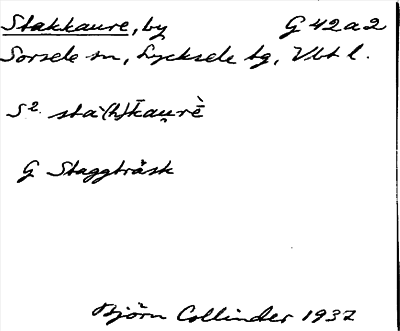 Stakkaure, by G 42 a 2
Sorsele sn, Lycksele tg, Vbt l.
S²
G Staggträsk
Björn Collinder 1937